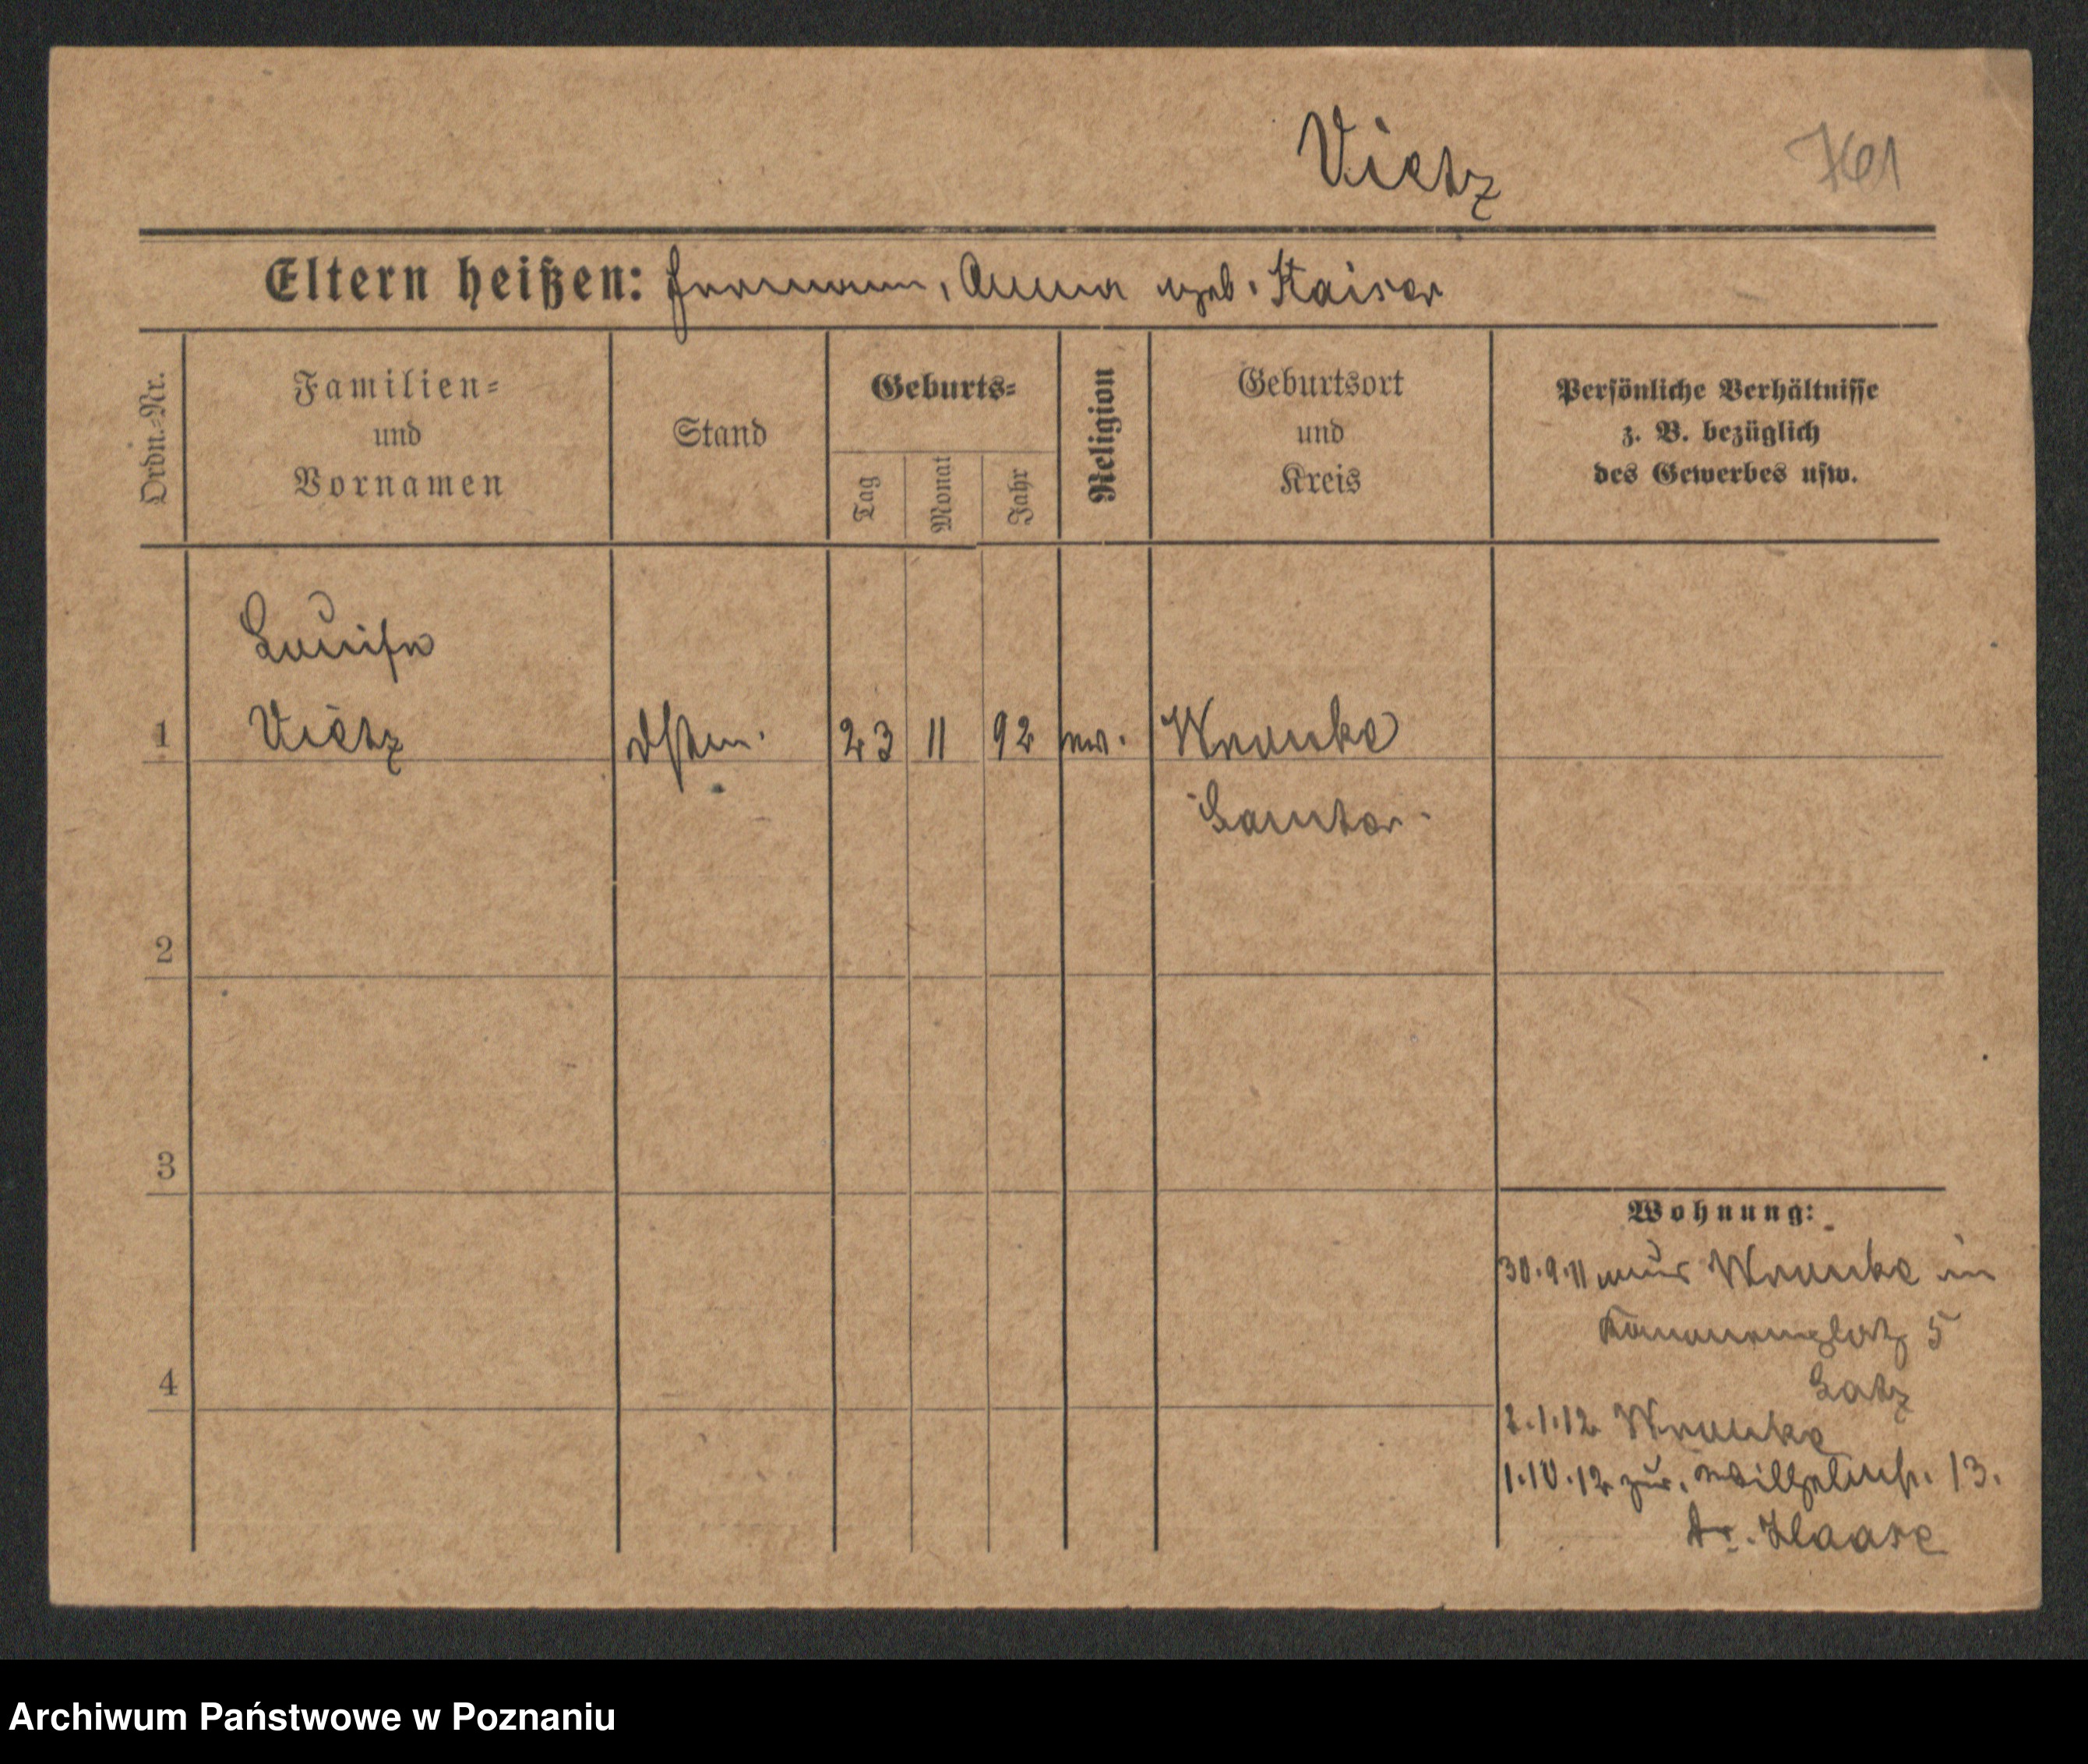 Vietz 761
Eltern heißen: Hermann, Anna geb. Kaiser
Ordn.-Nr.
Familien-
und
Vornamen
Stand
Geburts-
Tag
Monat
Jahr
Religion
Geburtsort
und
Kreis
Persönliche Verhältnisse
z. B. bezüglich
des Gewerbes usw.
Louise
1 Vietz Dstm. 23 11 92 ev. Wronke
Samter
2
3
Wohnung:
30.9.11 aus Wronke in
5
4
2.1.12 Wronke
1.10.12 zur. Wilhelmstr. 13.
Dr. Haase
Archiwum Państwowe w Poznaniu